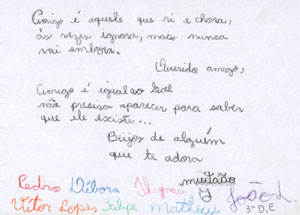 Amigo é aquele que ri e chora,
às vezes ignora, mas nunca
vai embora.
Querido amigo,
Amigo é igual ao Sol
não precisa aparecer para saber
que ele existe...
Beijos de alguém
que te adora
Pedro Débora
João L
Vitor Lopes Felipe Matheus 3ª D, E